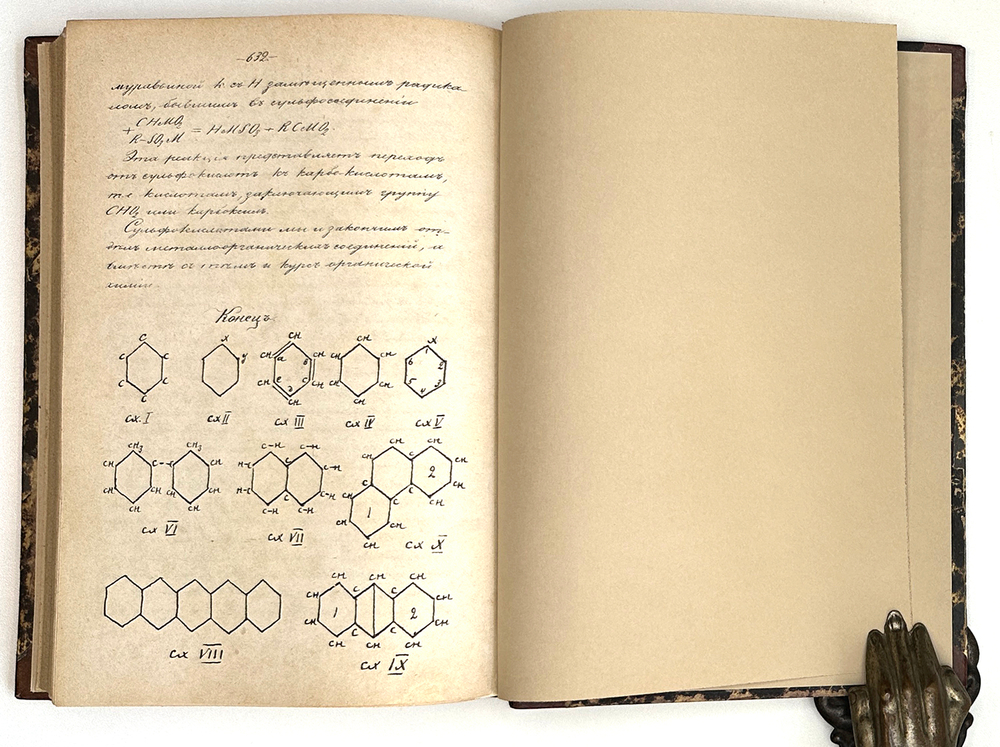 -632-
муравьиной к. съ Н замѣщеннымъ радика-
ломъ, бывшимъ въ сульфосоединеніи
+CHMO₂
R-SO₃M = HMSO₃ + RCMO₂.
Эта реакція представляетъ переходъ
отъ сульфокислотъ къ карбо-кислотамъ,
т.е. кислотамъ, заключающимъ группу
CHO₂ или карбоксилъ.
Сульфокислотами мы и закончимъ от-
дѣлъ металлоорганическихъ соединеній, а
вмѣстѣ съ тѣмъ и курсъ органической
химіи.
Конецъ
C C C C C C
X y
CH CH CH CH CH CH a b c d e
CH CH CH CH CH CH
X 1 2 3 4 5 6
сх. I сх II сх III сх IV сх V
CH₃ CH C-C CH CH CH CH CH₃ CH CH CH CH
C-H C-H H-C C-H H-C C-H C-H C-H C C
CH CH CH CH CH C C C C CH CH CH CH 1 2
сх VI сх VII сх X
CH CH CH CH C C CH CH CH CH C C CH CH 1 2
сх VIII сх IX